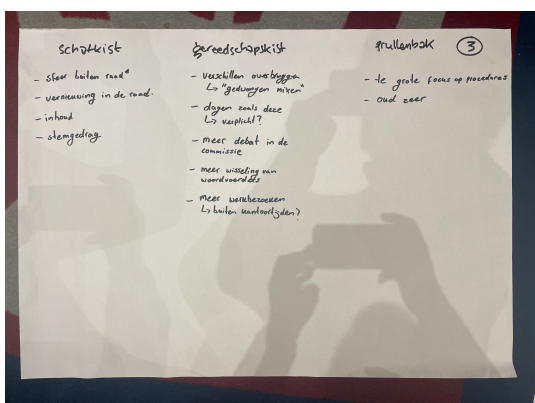 schatkist
- sfeer buiten raad*
- vernieuwing in de raad.
- inhoud
- stemgedrag
gereedschapskist
- verschillen overbruggen
↳ "gedwongen mixen"
- dagen zoals deze
↳ verplicht?
- meer debat in de
commissie
- meer wisseling van
woordvoerders
- meer werkbezoeken
↳ buiten kantoortijden?
prullenbak
3
- te grote focus op procedures
- oud zeer